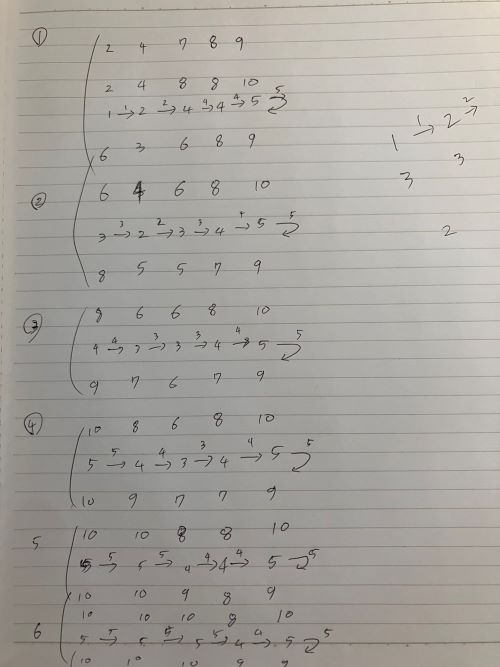 ①
2 4 7 8 9
2 4 8 8 10
1 →1 2 →2 4 →4 4 →4 5 ⊃5
6 3 6 8 9
②
6 4 6 8 10
3 →3 2 →2 3 →3 4 →4 5 ⊃5
8 5 5 7 9
③
8 6 6 8 10
4 →4 3 →3 3 →3 4 →4 5 ⊃5
9 7 6 7 9
④
10 8 6 8 10
5 →5 4 →4 3 →3 4 →4 5 ⊃5
10 9 7 7 9
5
10 10 8 8 10
5 →5 5 →5 4 →4 4 →4 5 ⊃5
10 10 9 8 9
6
10 10 10 8 10
5 →5 5 →5 5 →5 4 →4 5 ⊃5
10 10 10 9 9
1 →1 2 →2
3 3
2